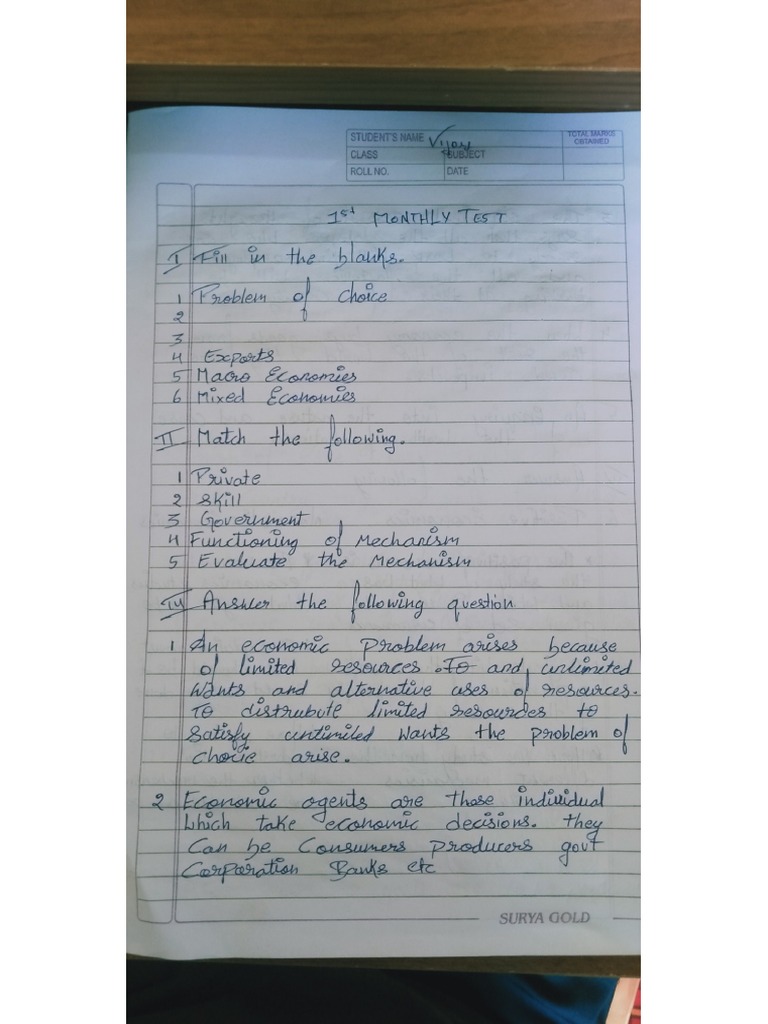 STUDENT'S NAME Vijay
TOTAL MARKS OBTAINED
CLASS SUBJECT
ROLL NO. DATE
1st MONTHLY TEST
I Fill in the blanks.
1 Problem of choice
2
3
4 Exports
5 Macro Economies
6 Mixed Economies
II Match the following.
1 Private
2 Skill
3 Government
4 Functioning of Mechanism
5 Evaluate the Mechanism
III Answer the following question
1 An economic problem arises because
of limited resources .To and unlimited
wants and alternative uses of resources.
To distrubute limited resources to
satisfy untimiled wants the problem of
choice arise.
2 Economic agents are those individual
which take economic decisions. they
can be Consumers producers govt
Corporation Banks etc
SURYA GOLD